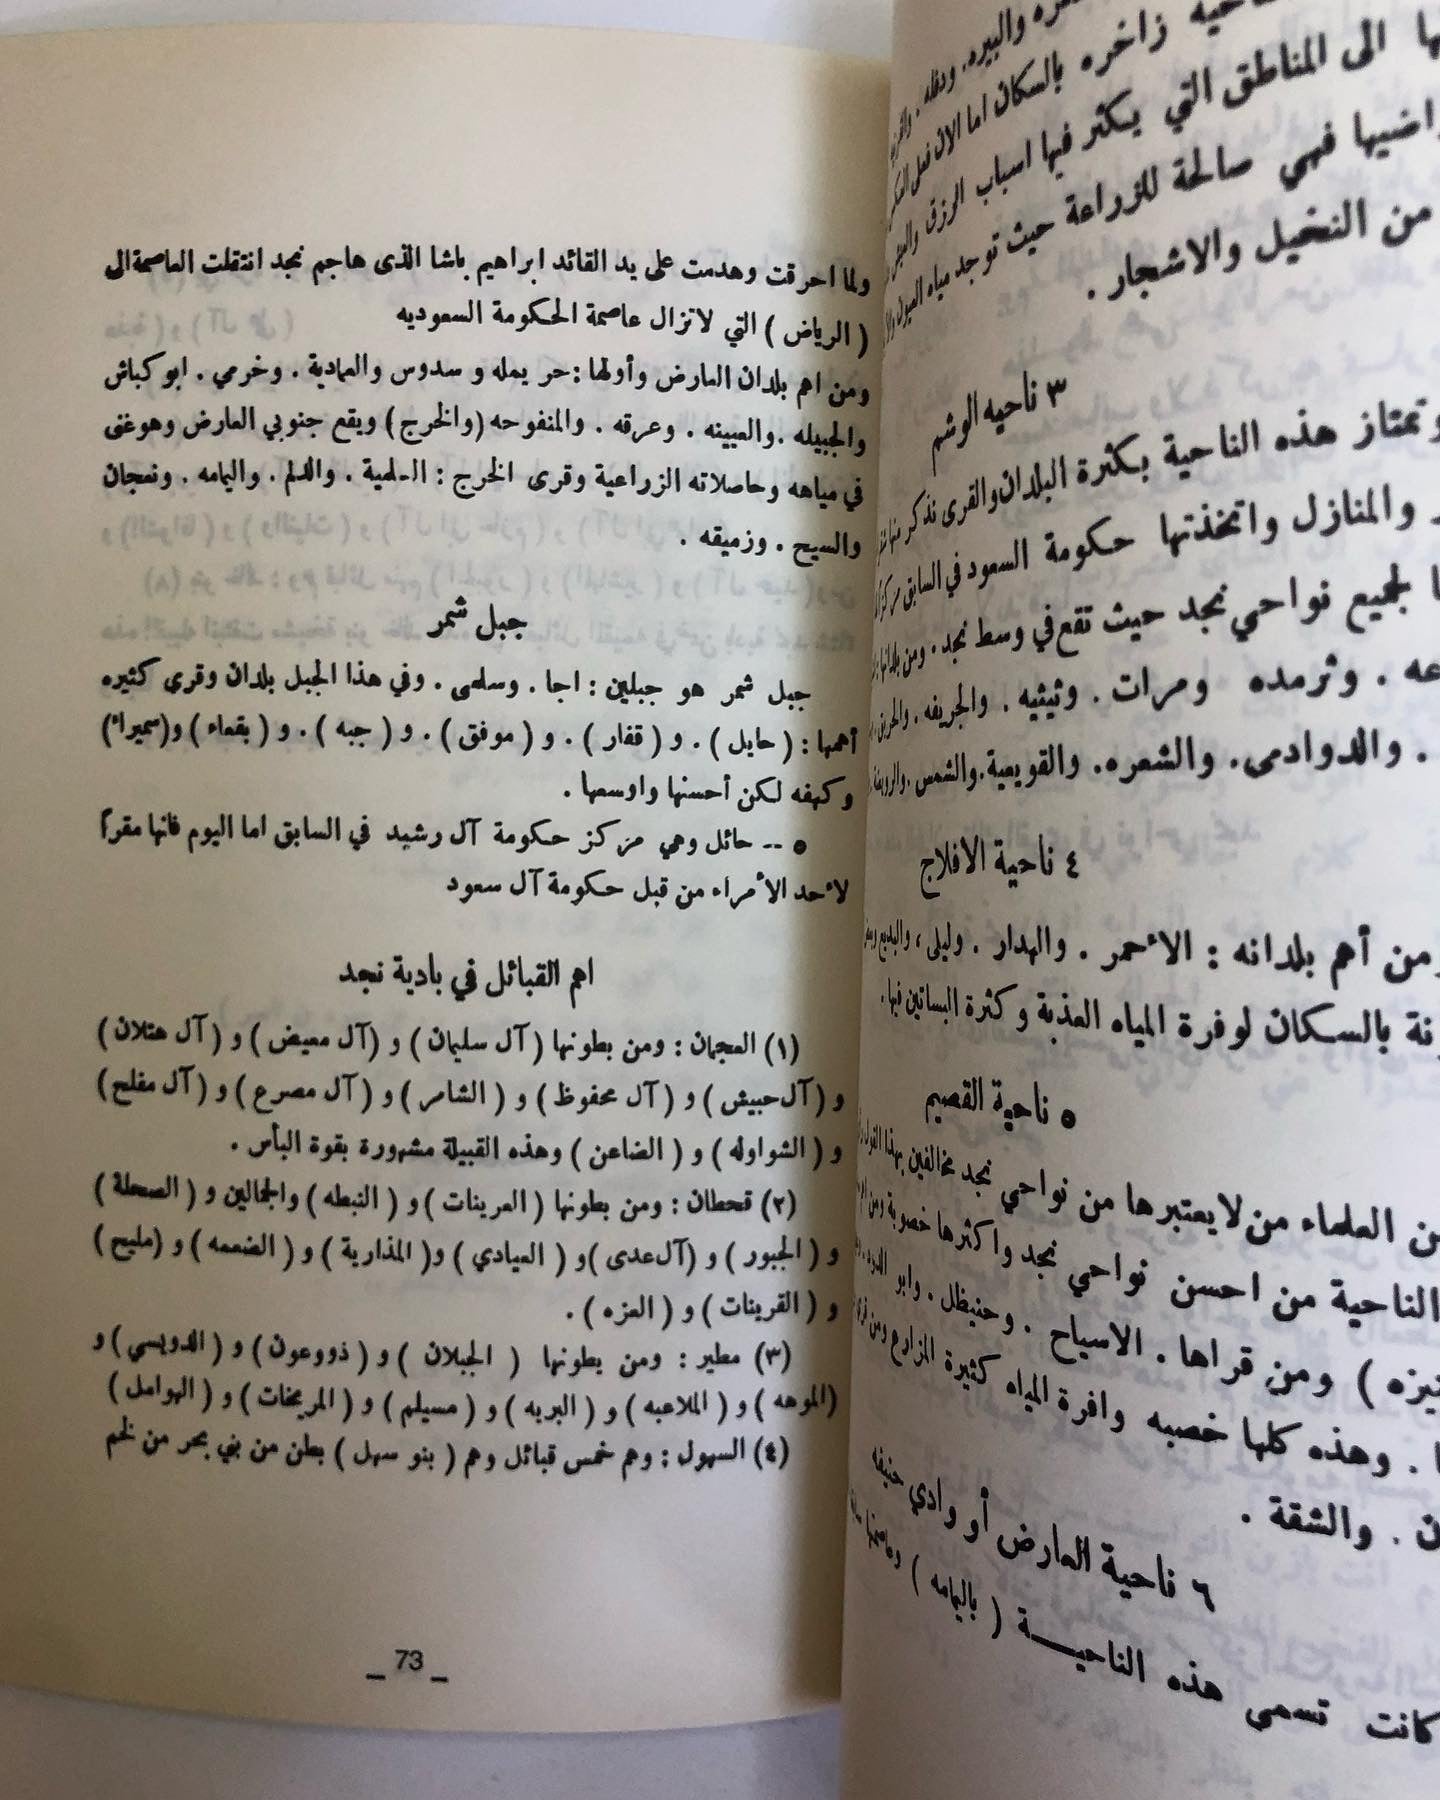 زاخره بالسكان اما الان فعلى
الى المناطق التي يكثر فيها اسباب الرزق
فهي صالحة للزراعة حيث توجد مياه العيون
من النخيل والاشجار .
٣ ناحيه الوشم
وتمتاز هذه الناحية بكثرة البلدان والقرى نذكر منها
والمنازل واتخذتها حكومة السعود في السابق مركزا
لجميع نواحي نجد حيث تقع في وسط نجد . ومن بلدانها
. وثرمده ومرات . وثيثيه . والجريفه . والحريق
. والدوادمى . والشعره . والقويعية . والشمس .
٤ ناحية الافلاج
ومن أهم بلدانه : الأحمر . والهدار . وليلى ، والبديع
بالسكان لوفرة المياه العذبة وكثرة البساتين فيها .
٥ ناحية القصيم
العلماء من لا يعتبرها من نواحي نجد مخالفين بهذا القول
الناحية من احسن نواحي نجد واكثرها خصوبة ومن
) ومن قراها . الاسياح . وحنيظل . وابو الدود
. وهذه كلها خصبه وافرة المياه كثيرة المزارع ومن
. والشقة .
٦ ناحية العارض أو وادي حنيفه
كانت تسمى هذه الناحيـــة ( باليمامه )
ولما احرقت وهدمت على يد القائد ابراهيم باشا الذى هاجم نجد انتقلت العاصمة الى
( الرياض ) التي لا تزال عاصمة الحكومة السعوديه
ومن اهم بلدان العارض وأولها : حريمله و سدوس والعمادية . وخرمي . ابو كباش
والجبيله . والعيينه . وعرقه . والمنفوحه (والخرج) ويقع جنوبي العارض وهو غنى
في مياهه وحاصلاته الزراعية وقرى الخرج : السلمية . والدلم . واليمامه . ونعجان
والسيح . وزميقه .
جبل شمر
جبل شمر هو جبلين : اجا . وسلمى . وفي هذا الجبل بلدان وقرى كثيره
أهمها : ( حايل ) . و ( قفار ) . و ( موفق ) . و ( جبه ) . و ( بقعاء ) و(سميراء)
وكهفه لكن أحسنها واوسعها .
٥ -- حائل وهي مركز حكومة آل رشيد في السابق اما اليوم فانها مقراً
لأحد الأمراء من قبل حكومة آل سعود
اهم القبائل في بادية نجد
(١) العجمان : ومن بطونها ( آل سليمان ) و (آل معيض ) و ( آل هتلان )
و ( آل حبيش ) و ( آل محفوظ ) و ( الشامر ) و ( آل مصرع ) و ( آل مفلح )
و ( الشواوله ) و ( الضاعن ) وهذه القبيلة مشهورة بقوة البأس .
(٢) قحطان : ومن بطونها ( العرينات ) و ( النبطه ) والجمالين و ( الصحلة )
و ( الجبور ) و (آل عدى ) و ( العيادي ) و( المذارية ) و ( الضعمه ) و (مليح )
و ( القرينات ) و ( العزه ) .
(٣) مطير : ومن بطونها ( الجبلان ) و ( ذووعون ) و ( الدويسي ) و
(الموهه ) و ( الملاعبه ) و ( البربه ) و ( مسيلم ) و ( المريخات ) و ( الهوامل )
(٤) السهول : وهم خمس قبائل وهم ( بنو سهل ) بطن من بني بحر من لخم
_ 73 _